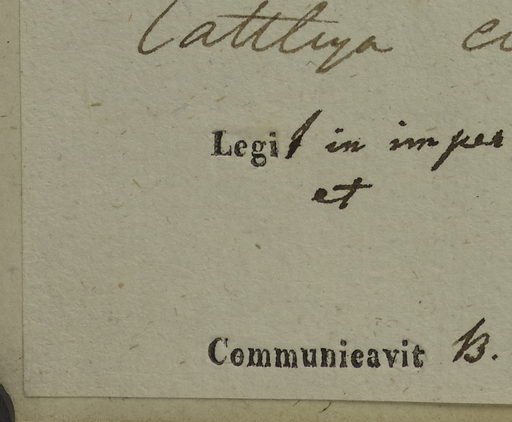 Cattleya
Legit in imper
et
Communicavit B.